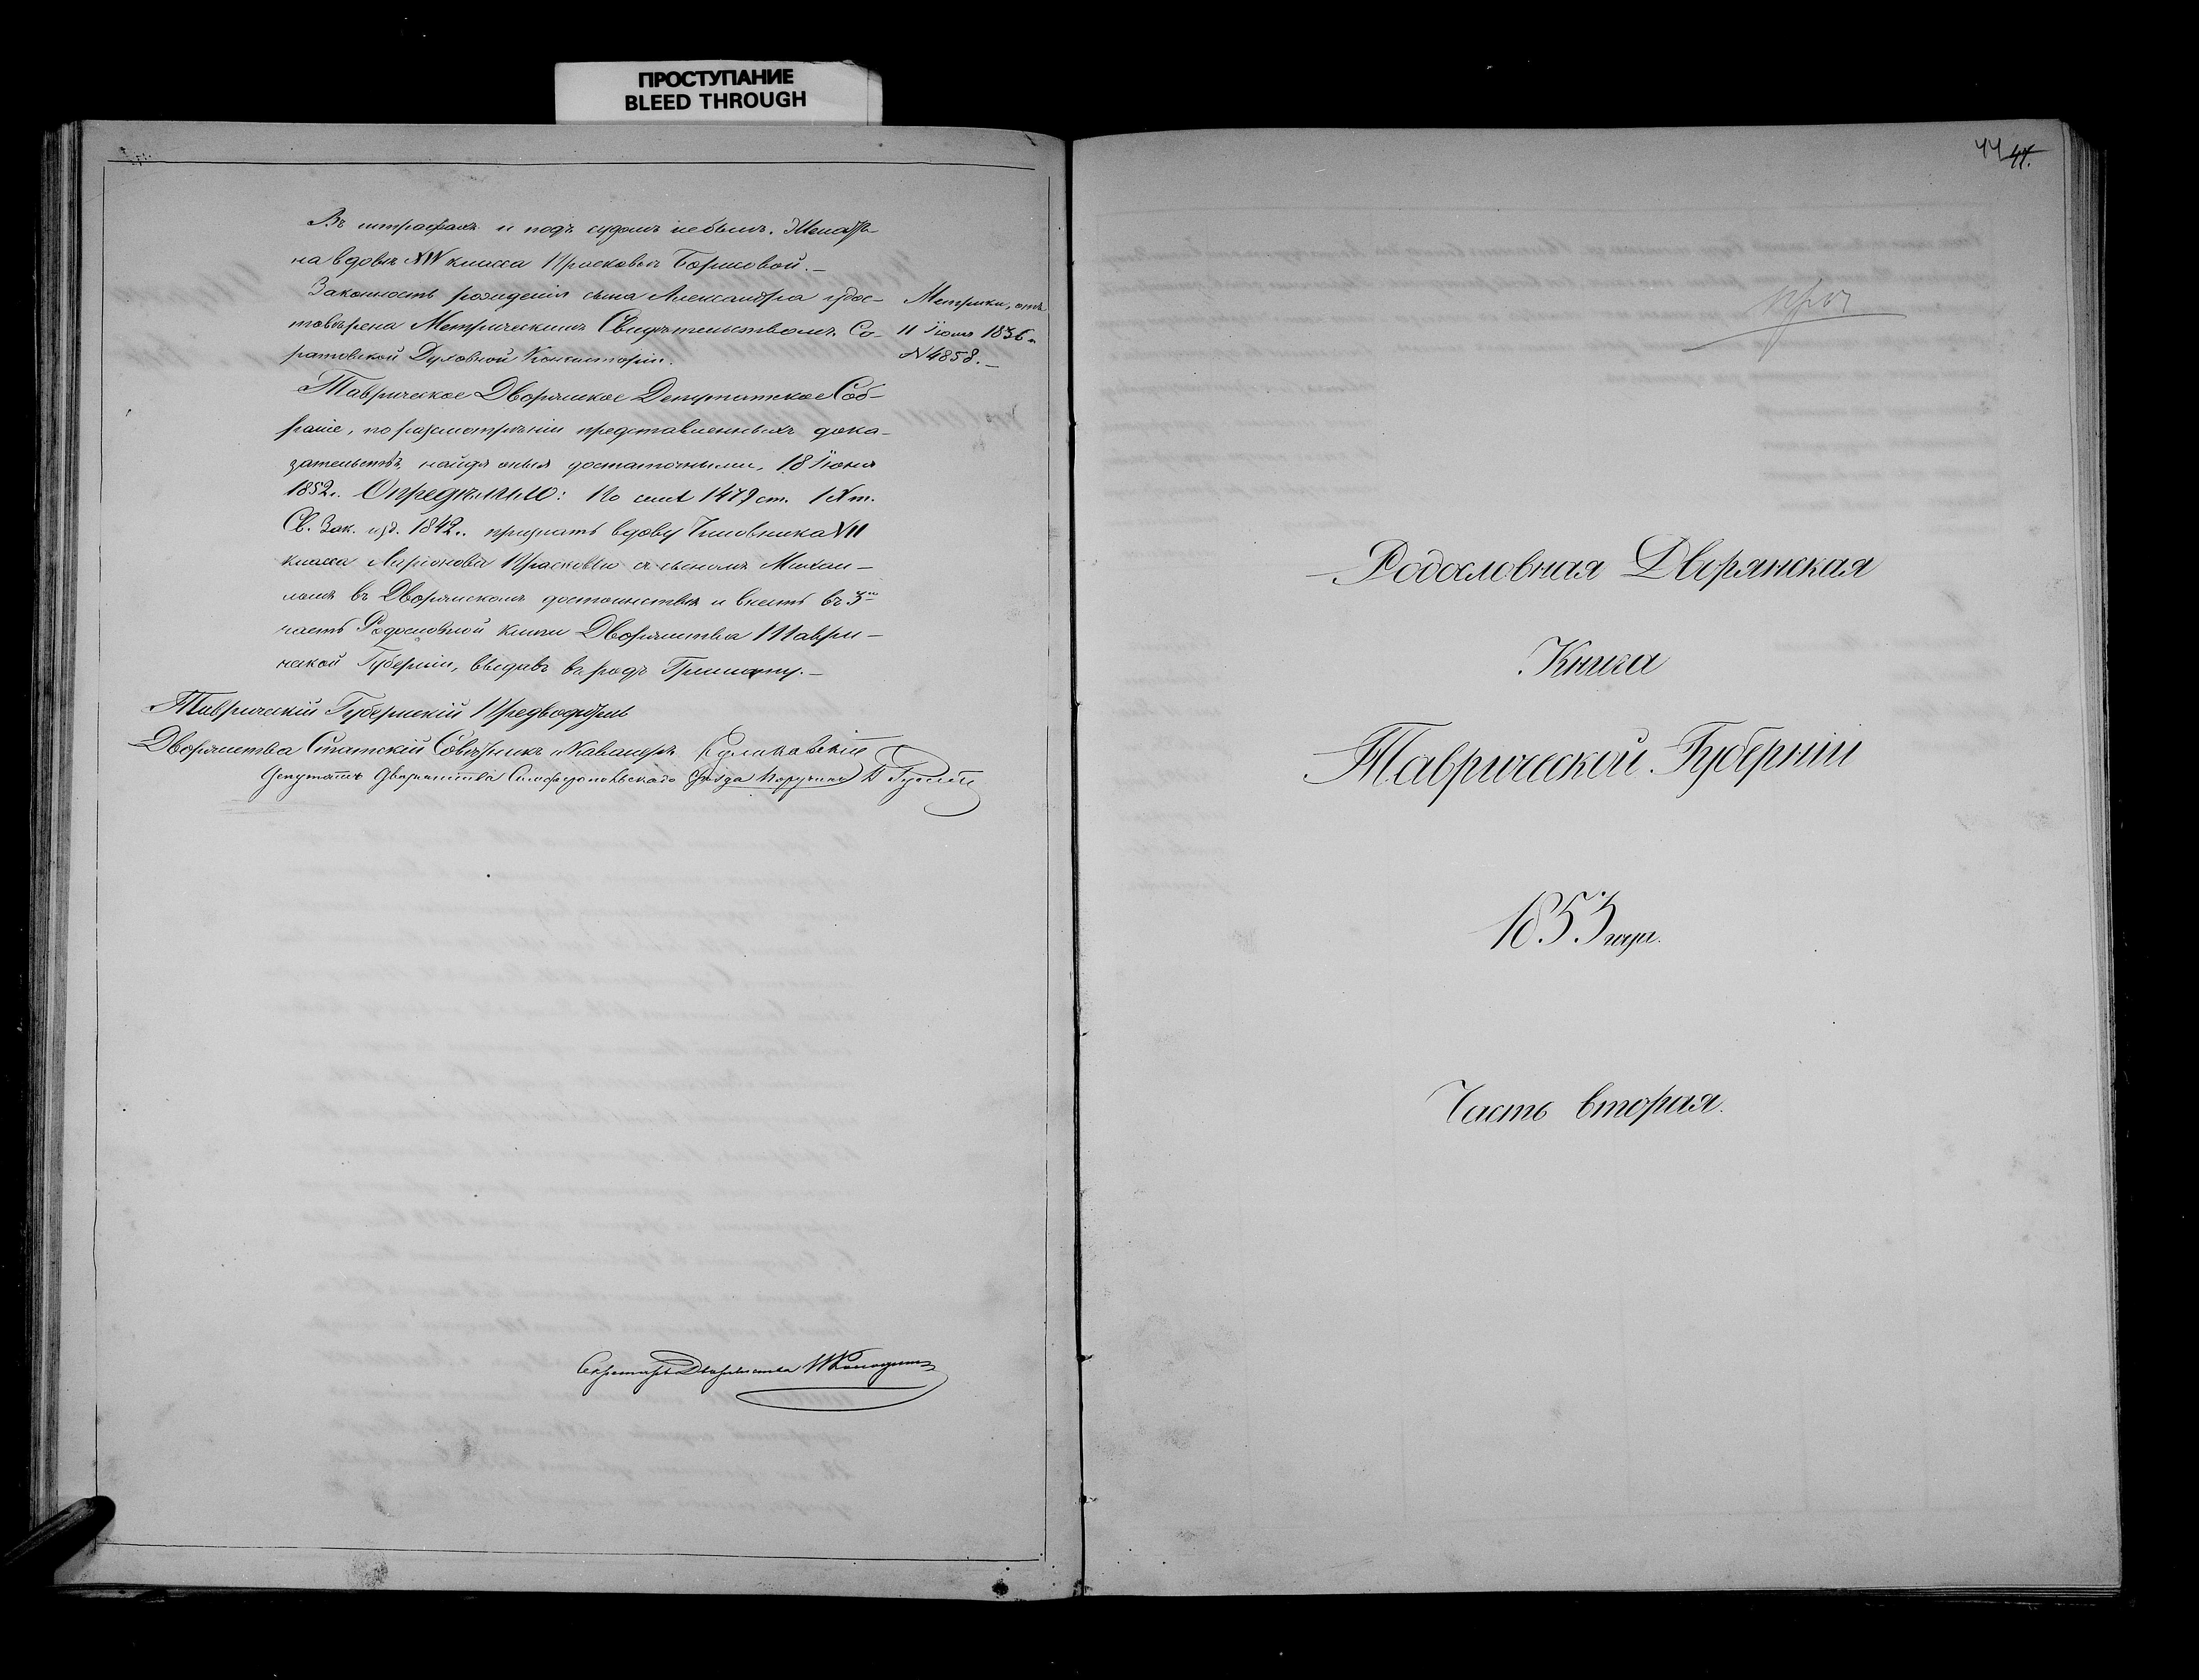 ПРОСТУПАНИЕ
BLEED THROUGH
Въ штрафахъ и подъ судомъ небылъ. Женатъ
на вдовѣ XIV класса Прасковьи Борисовой.—
Законность рожденія сына Александра удос-
товѣрена Метрическимъ Свидѣтельствомъ Са-
ратовской Духовной Консисторіи.
Метрики, отъ
11 Іюня 1836 г.
N 4858.—
Таврическое Дворянское Депутатское Соб-
раніе, по разсмотрѣніи представленныхъ дока-
зательствъ, найдя оныя достаточными, 18 Іюня
1852 г. Опредѣлило: По силѣ 1479 ст. IX т.
Св. Зак. изд. 1842 г. признать вдову Чиновника VII
класса Ларіонова Прасковью съ сыномъ Михаи-
ломъ въ Дворянскомъ достоинствѣ и внесть въ 3ю
часть Родословной книги Дворянства Таври-
ческой Губерніи, выдавъ въ родъ Грамоту.—
Таврическій Губернскій Предводитель
Дворянства Статскій Совѣтникъ и Кавалеръ
Депутатъ Дворянства Симферопольскаго Уѣзда Поручикъ
Секретарь Дворянства
44 47.
Родословная Дворянская
Книга
Таврической Губерніи
1853 года.
Часть вторая.